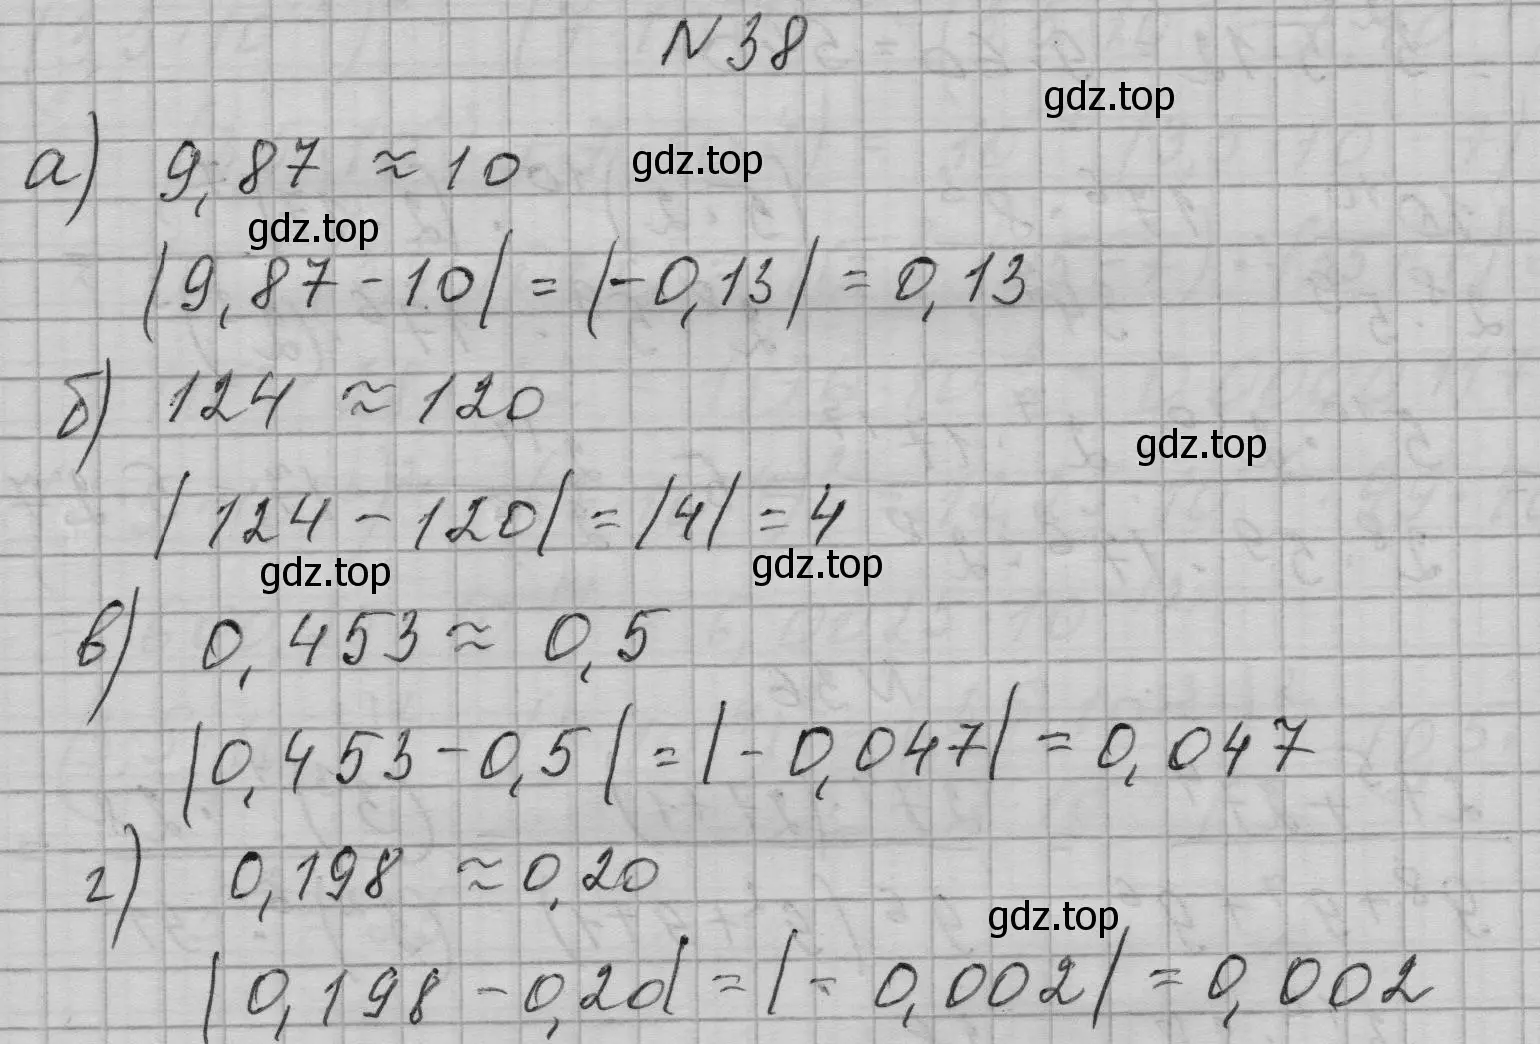 N 38
gdz.top
а) 9,87 ≈ 10
gdz.top
gdz.top
|9,87 - 10| = |-0,13| = 0,13
б) 124 ≈ 120
gdz.top
|124 - 120| = |4| = 4
gdz.top
gdz.top
в) 0,453 ≈ 0,5
|0,453 - 0,5| = |-0,047| = 0,047
г) 0,198 ≈ 0,20
gdz.top
|0,198 - 0,20| = |-0,002| = 0,002